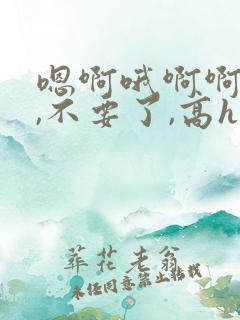 嗯啊哦啊啊
,不要了,高h
葬花老翁
未经同意禁止转载